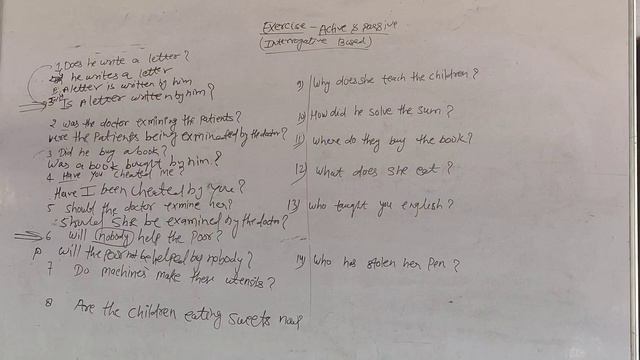 Exercise - Active & Passive
(Interrogative Based)
1. Does he write a letter?
he writes a letter
A letter is written by him
3 Is A letter written by him?
2 was the doctor exmining the Patients?
were the Patients being exmineted by the doctor?
3 Did he buy a book?
Was a book bought by him?
4 Have you cheated me?
Have I been cheated by you?
5 should the doctor exmine her?
should she be examined by the doctor?
6 will nobody help the Poor?
P will the poor not be helped by nobody?
7 Do machines make these utensils?
8 Are the children eating sweets now
9) Why does she teach the children?
10 How did he solve the sum?
11) where do they buy the book?
12) what does she eat?
13) who taught you english?
14) who has stolen her pen?